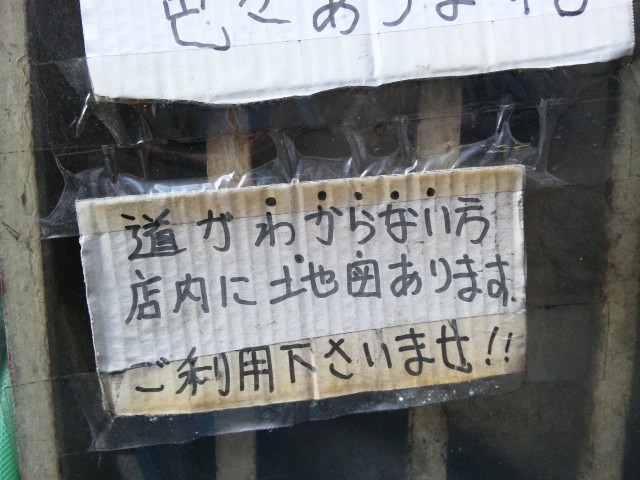 道がわからない方
店内に地図あります.
ご利用下さいませ!!